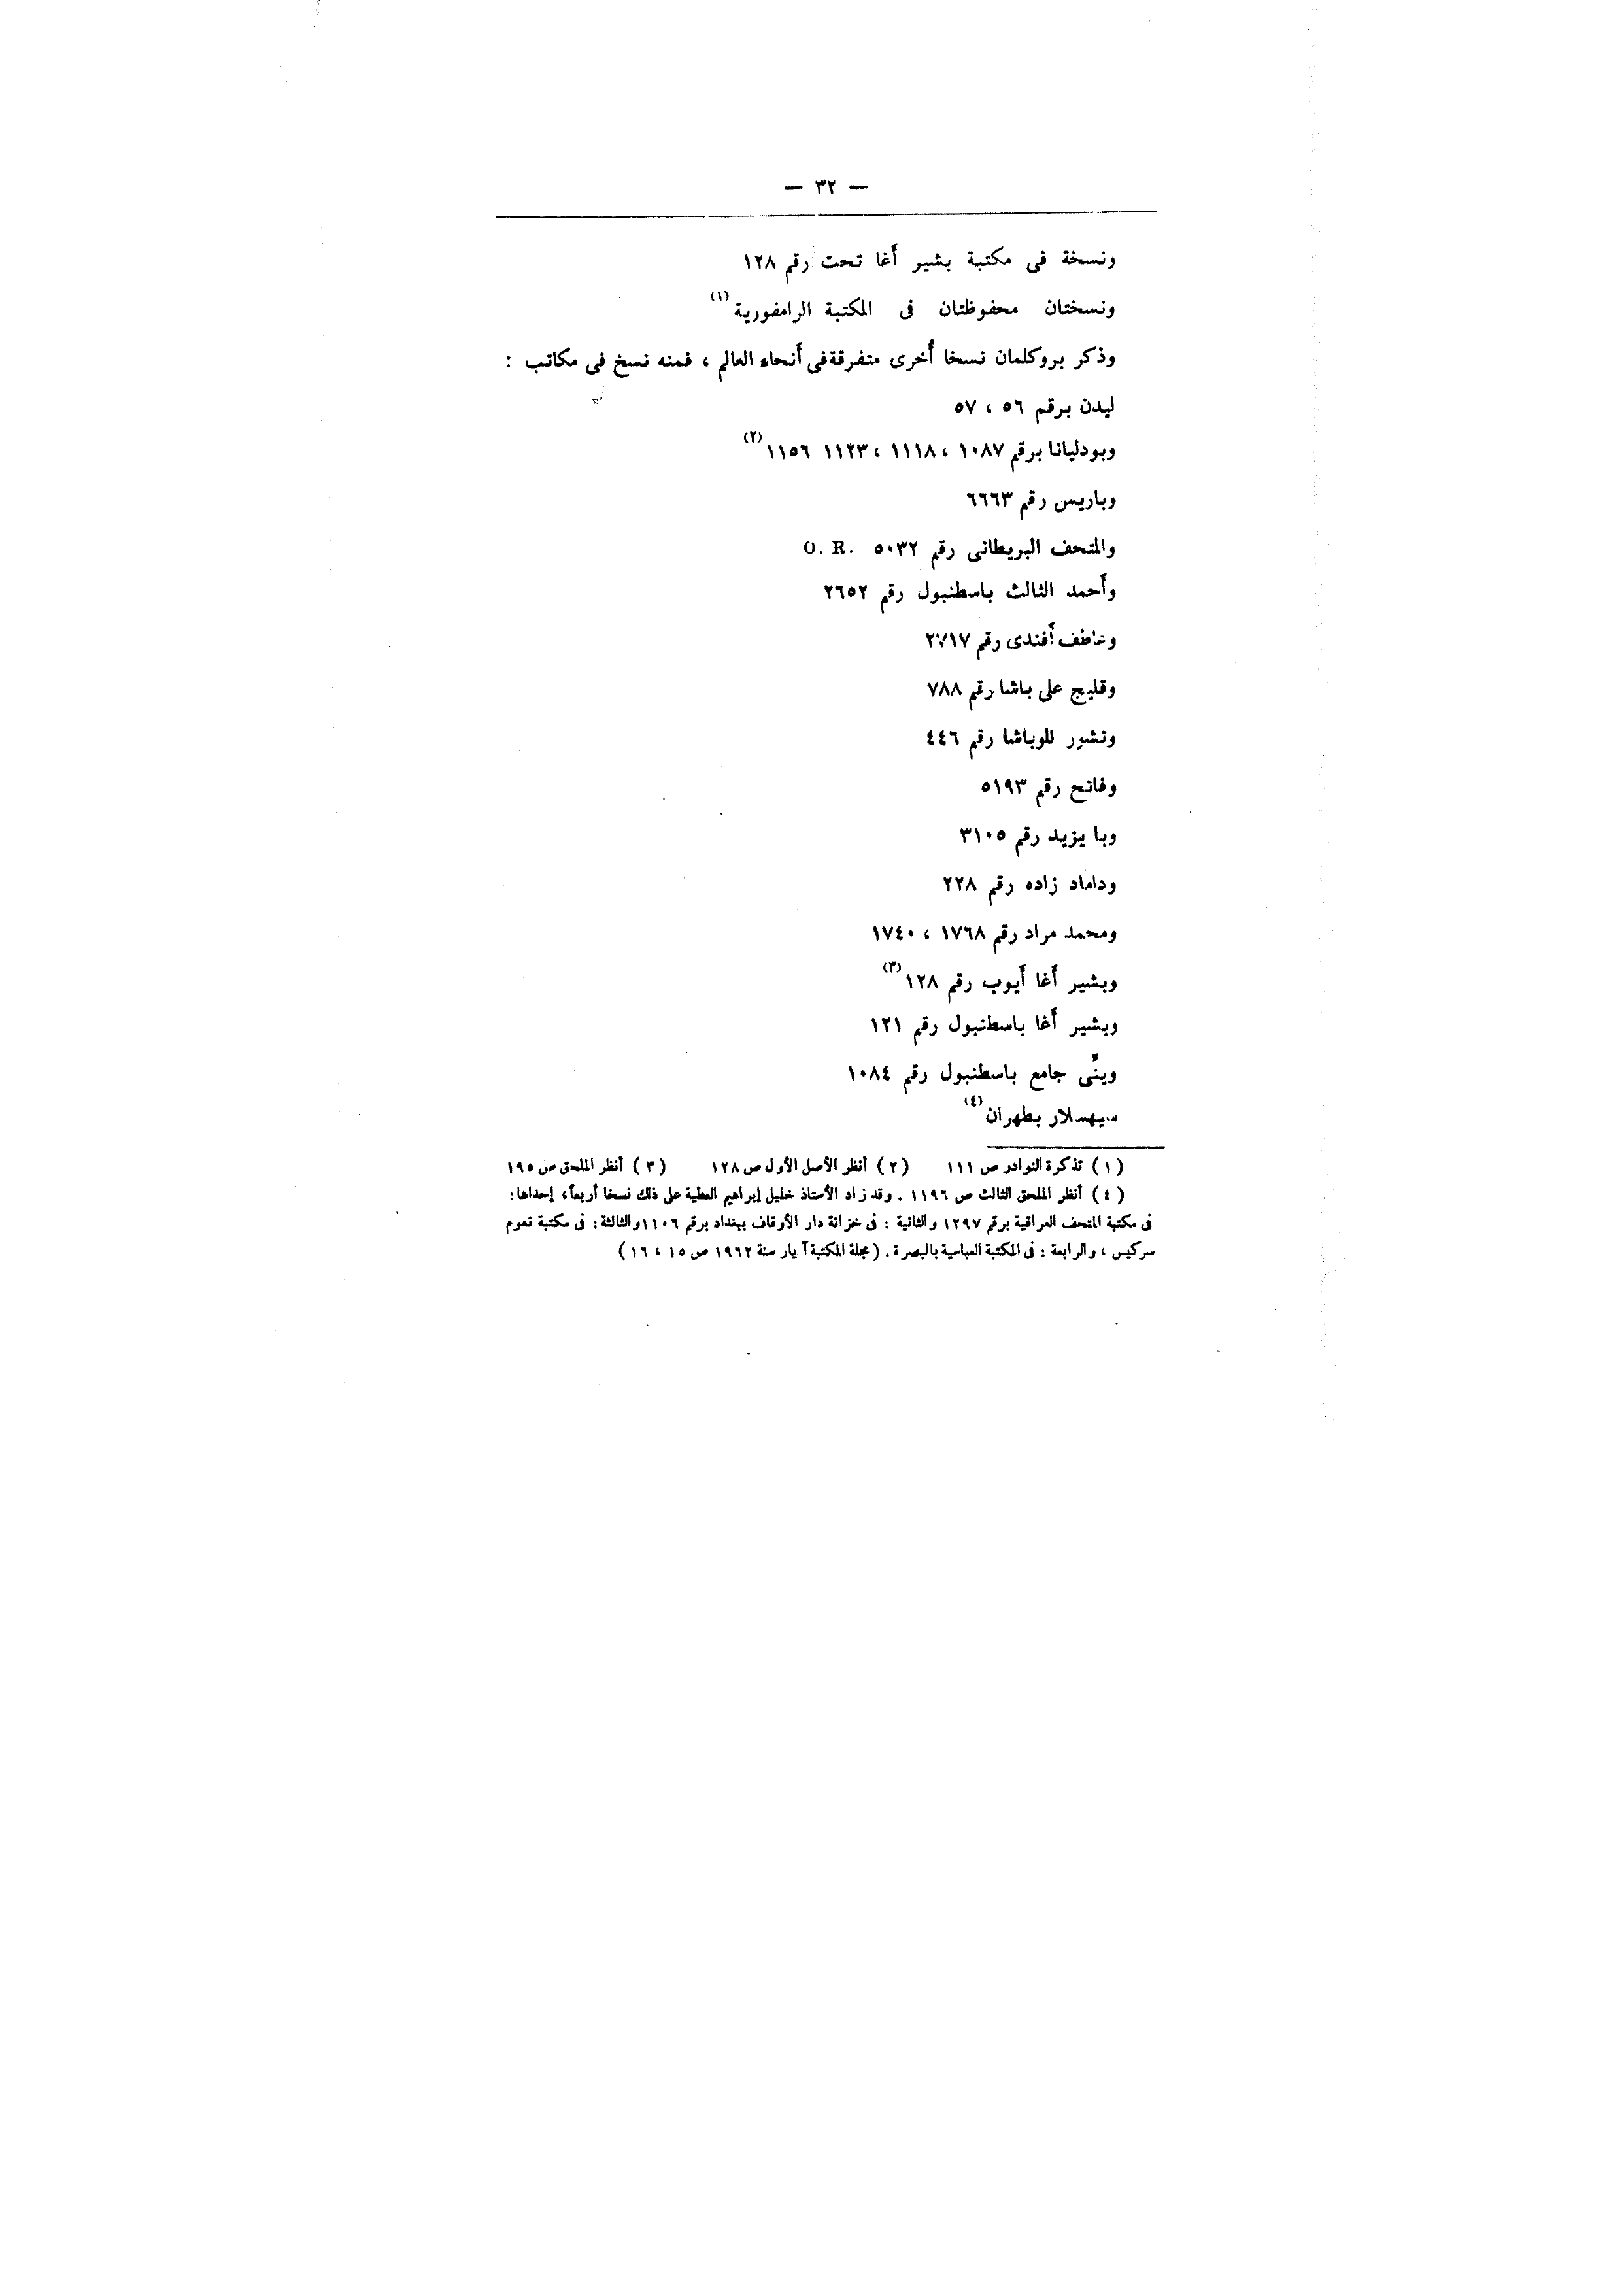 — ٣٢ —
ونسخة فى مكتبة بشير أغا تحت رقم ١٢٨
ونسختان محفوظتان فى المكتبة الرامفورية (١)
وذكر بروكلمان نسخا أُخرى متفرقة فى أنحاء العالم ، فمنه نسخ فى مكاتب :
ليدن برقم ٥٦ ، ٥٧
وبودليانا برقم ١٠٨٧ ، ١١١٨ ، ١١٢٣ ١١٥٦ (٢)
وباريس رقم ٦٦٦٣
والمتحف البريطانى رقم ٥٠٣٢ O. R.
وأحمد الثالث باسطنبول رقم ٢٦٥٢
وعاطف أفندى رقم ٢٧١٧
وقليج على باشا رقم ٧٨٨
وتشور للوباشا رقم ٤٤٦
وفاتح رقم ٥١٩٣
وبا يزيد رقم ٣١٠٥
وداماد زاده رقم ٢٢٨
ومحمد مراد رقم ١٧٦٨ ، ١٧٤٠
وبشير أغا أيوب رقم ١٢٨ (٣)
وبشير أغا باسطنبول رقم ١٢١
وينَّى جامع باسطنبول رقم ١٠٨٤
سيهسلار بطهران (٤)
( ١ ) تذكرة النوادر ص ١١١ ( ٢ ) أنظر الأصل الأول ص ١٢٨ ( ٣ ) أنظر الملحق ص ١٩٥
( ٤ ) أنظر الملحق الثالث ص ١١٩٦ . وقد زاد الأستاذ خليل إبراهيم العطية على ذلك نسخا أربعاً، إحداها :
فى مكتبة المتحف العراقية برقم ١٢٩٧ والثانية : فى خزانة دار الأوقاف ببغداد برقم ١١٠٦ والثالثة : فى مكتبة نعوم
سركيس ، والرابعة : فى المكتبة العباسية بالبصرة . ( مجلة المكتبة آ يار سنة ١٩٦٢ ص ١٥ ، ١٦ )